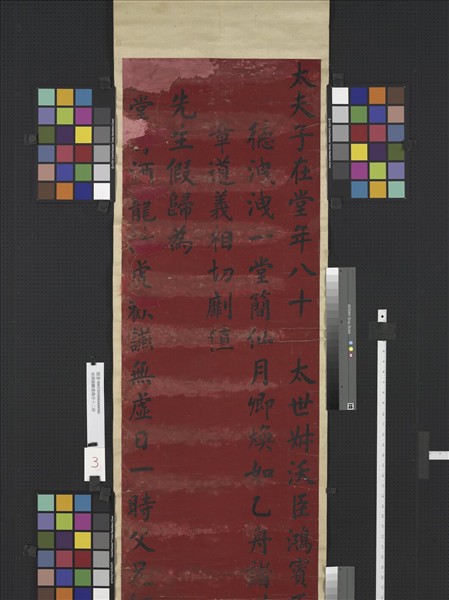 太夫子在堂年八十 太世姊沃臣鴻寶
德洩洩一堂簡仙月卿煥如乙舟諸
章道義相切劘縝
先生假歸為
堂 酒龍 讌無虛日一時父兄
3